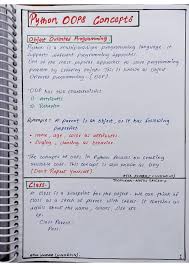 Python OOPS Concepts
Object Oriented Programming
Python is a multiparadigm programming language. It
supports different programming approaches.
One of the most popular approaches to solve programming
problem by creating objects. This is known as Object
Oriented Programming (OOP)
OOP has two characteristics
1) attributes
2) Behavior
Example: A parrot is an object, as it has following
properties
• name, age, color as attributes
• Singing, dancing as behavior
The concept of OOPS in Python focuses on creating
reusable code. This concept is also known as DRY
(Don't Repeat Yourself)
Class
A class is a blueprint for the object. We can think of
class as a sketch of parrot with labels. It contains all
details about the name, colors, size etc.
eg. class Parrot:
Pass